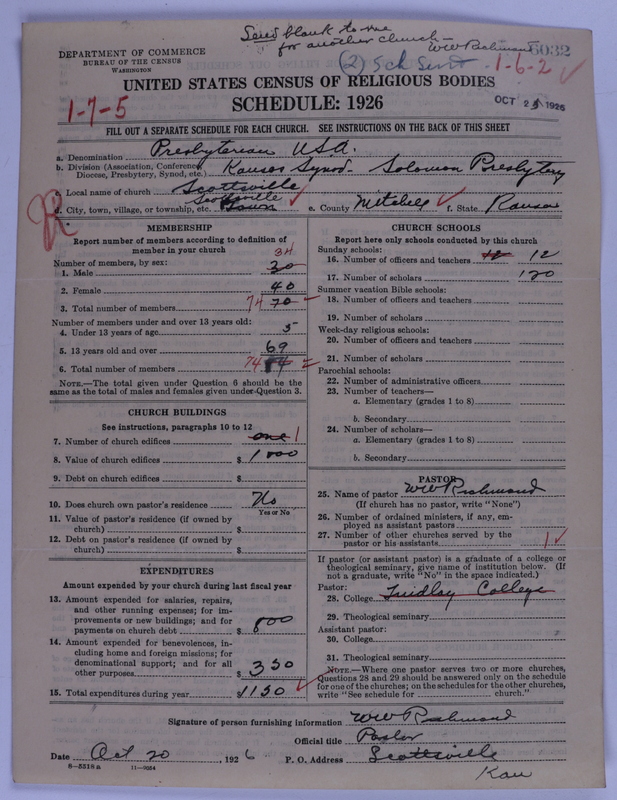 Send blank to me
for another church -
WW Richmond 6032
DEPARTMENT OF COMMERCE
BUREAU OF THE CENSUS
WASHINGTON
(2) Sch Sent 1-6-2
UNITED STATES CENSUS OF RELIGIOUS BODIES
1-7-5
SCHEDULE: 1926
OCT 25 1926
FILL OUT A SEPARATE SCHEDULE FOR EACH CHURCH. SEE INSTRUCTIONS ON THE BACK OF THIS SHEET
a. Denomination Presbyterian USA.
b. Division (Association, Conference, Diocese, Presbytery, Synod, etc.) Kansas Synod - Solomon Presbytery
c. Local name of church Scottsville
d. City, town, village, or township, etc. Scottsville e. County Mitchell f. State Kansas
MEMBERSHIP
Report number of members according to definition of
member in your church
Number of members, by sex:
34
1. Male 30
2. Female 40
3. Total number of members 74 70
Number of members under and over 13 years old:
4. Under 13 years of age 5
5. 13 years old and over 69
6. Total number of members 74
NOTE.—The total given under Question 6 should be the
same as the total of males and females given under Question 3.
CHURCH BUILDINGS
See instructions, paragraphs 10 to 12
7. Number of church edifices one 1
8. Value of church edifices $ 1000
9. Debt on church edifices $
10. Does church own pastor's residence No
Yes or No
11. Value of pastor's residence (if owned by
church) $
12. Debt on pastor's residence (if owned by
church) $
EXPENDITURES
Amount expended by your church during last fiscal year
13. Amount expended for salaries, repairs,
and other running expenses; for im-
provements or new buildings; and for
payments on church debt $ 800
14. Amount expended for benevolences, in-
cluding home and foreign missions; for
denominational support; and for all
other purposes $ 350
15. Total expenditures during year $ 1150
CHURCH SCHOOLS
Report here only schools conducted by this church
Sunday schools:
16. Number of officers and teachers 12 12
17. Number of scholars 120
Summer vacation Bible schools:
18. Number of officers and teachers
19. Number of scholars
Week-day religious schools:
20. Number of officers and teachers
21. Number of scholars
Parochial schools:
22. Number of administrative officers
23. Number of teachers—
a. Elementary (grades 1 to 8)
b. Secondary
24. Number of scholars—
a. Elementary (grades 1 to 8)
b. Secondary
PASTOR
25. Name of pastor WW Richmond
(If church has no pastor, write "None")
26. Number of ordained ministers, if any, em-
ployed as assistant pastors
27. Number of other churches served by the
pastor or his assistants 1
If pastor (or assistant pastor) is a graduate of a college or
theological seminary, give name of institution below. (If
not a graduate, write "No" in the space indicated.)
Pastor:
28. College Findlay College
29. Theological seminary
Assistant pastor:
30. College
31. Theological seminary
NOTE.—Where one pastor serves two or more churches,
Questions 28 and 29 should be answered only on the schedule
for one of the churches; on the schedules for the other churches,
write "See schedule for church."
Signature of person furnishing information WW Richmond
Official title Pastor
Date Oct 20, 1926 P. O. Address Scottsville
Kan
8-5518 a 11-9054